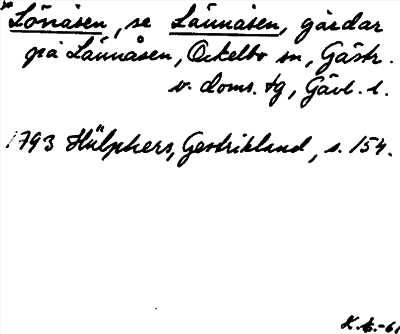 *Lönåsen, se Lännåsen, gårdar
på Lännåsen, Ockelbo sn, Gästr.
v. doms. tg, Gävl. l.
1793 Hülphers, Gestrikland, s. 154.
K.E.-61